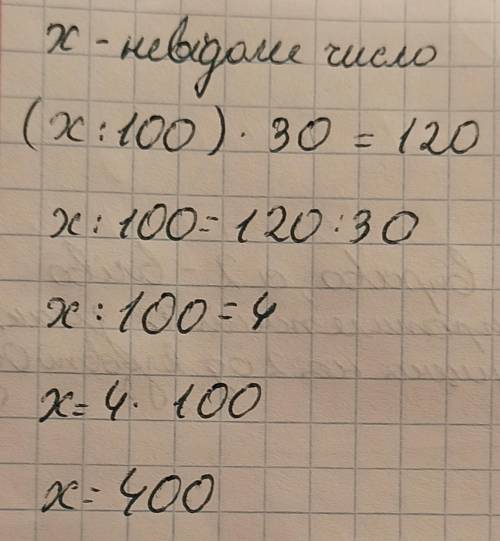 x - невідоме число
(x : 100) · 30 = 120
x : 100 = 120 : 30
x : 100 = 4
x = 4 · 100
x = 400